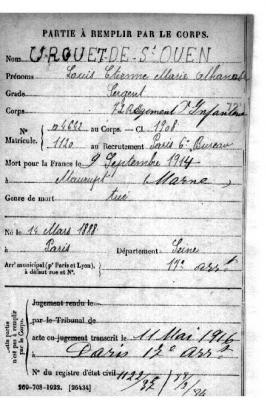 PARTIE À REMPLIR PAR LE CORPS.
Nom URGUET-DE-St OUEN
Prénoms Louis Etienne Marie Athanase
Grade Sergent
Corps 72 Régiment d'Infanterie
N° Matricule. 04622 au Corps. — Cl. 1908
1120 au Recrutement Paris 6e Bureau
Mort pour la France le 9 Septembre 1914
à Maurupt (Marne)
Genre de mort tué
Né le 14 Mars 1888
à Paris Département Seine
Arrt municipal (pr Paris et Lyon), à défaut rue et N°. 17e arrt
Cette partie n'est pas à remplir par le Corps.
Jugement rendu le
par le Tribunal de
acte ou jugement transcrit le 11 Mai 1916
à Paris 17e arrt
N° du registre d'état civil 1122/37
269-708-1922. [26434]